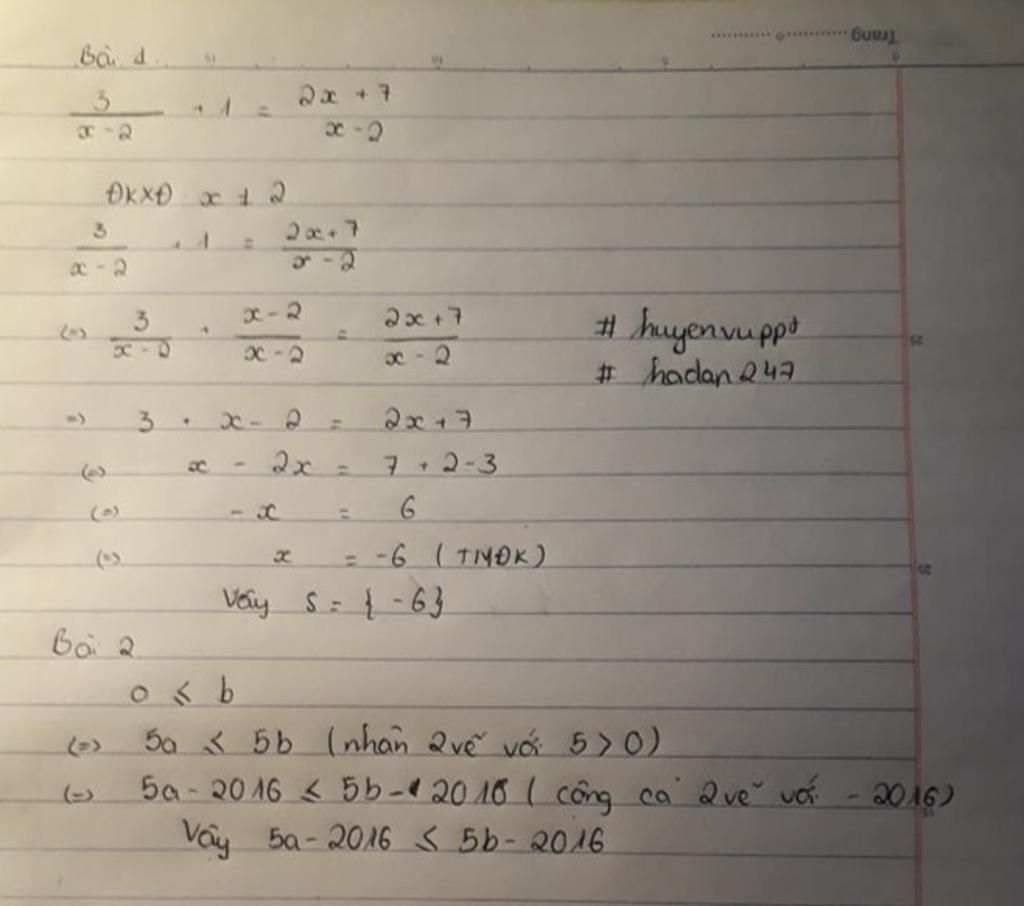 Trang
Bài 1
3/(x - 2) + 1 = (2x + 7)/(x - 2)
ĐKXĐ x ≠ 2
3/(x - 2) + 1 = (2x + 7)/(x - 2)
(=) 3/(x - 2) + (x - 2)/(x - 2) = (2x + 7)/(x - 2)
# huyenvuppt
# hadan247
=) 3 + x - 2 = 2x + 7
(=) x - 2x = 7 + 2 - 3
(=) - x = 6
(=) x = -6 (TMĐK)
Vậy S = { -6}
Bài 2
a ≤ b
(=) 5a ≤ 5b (nhân 2 vế với 5 > 0)
(=) 5a - 2016 ≤ 5b - 2016 ( cộng cả 2 vế với - 2016)
Vậy 5a - 2016 ≤ 5b - 2016
25
20
15